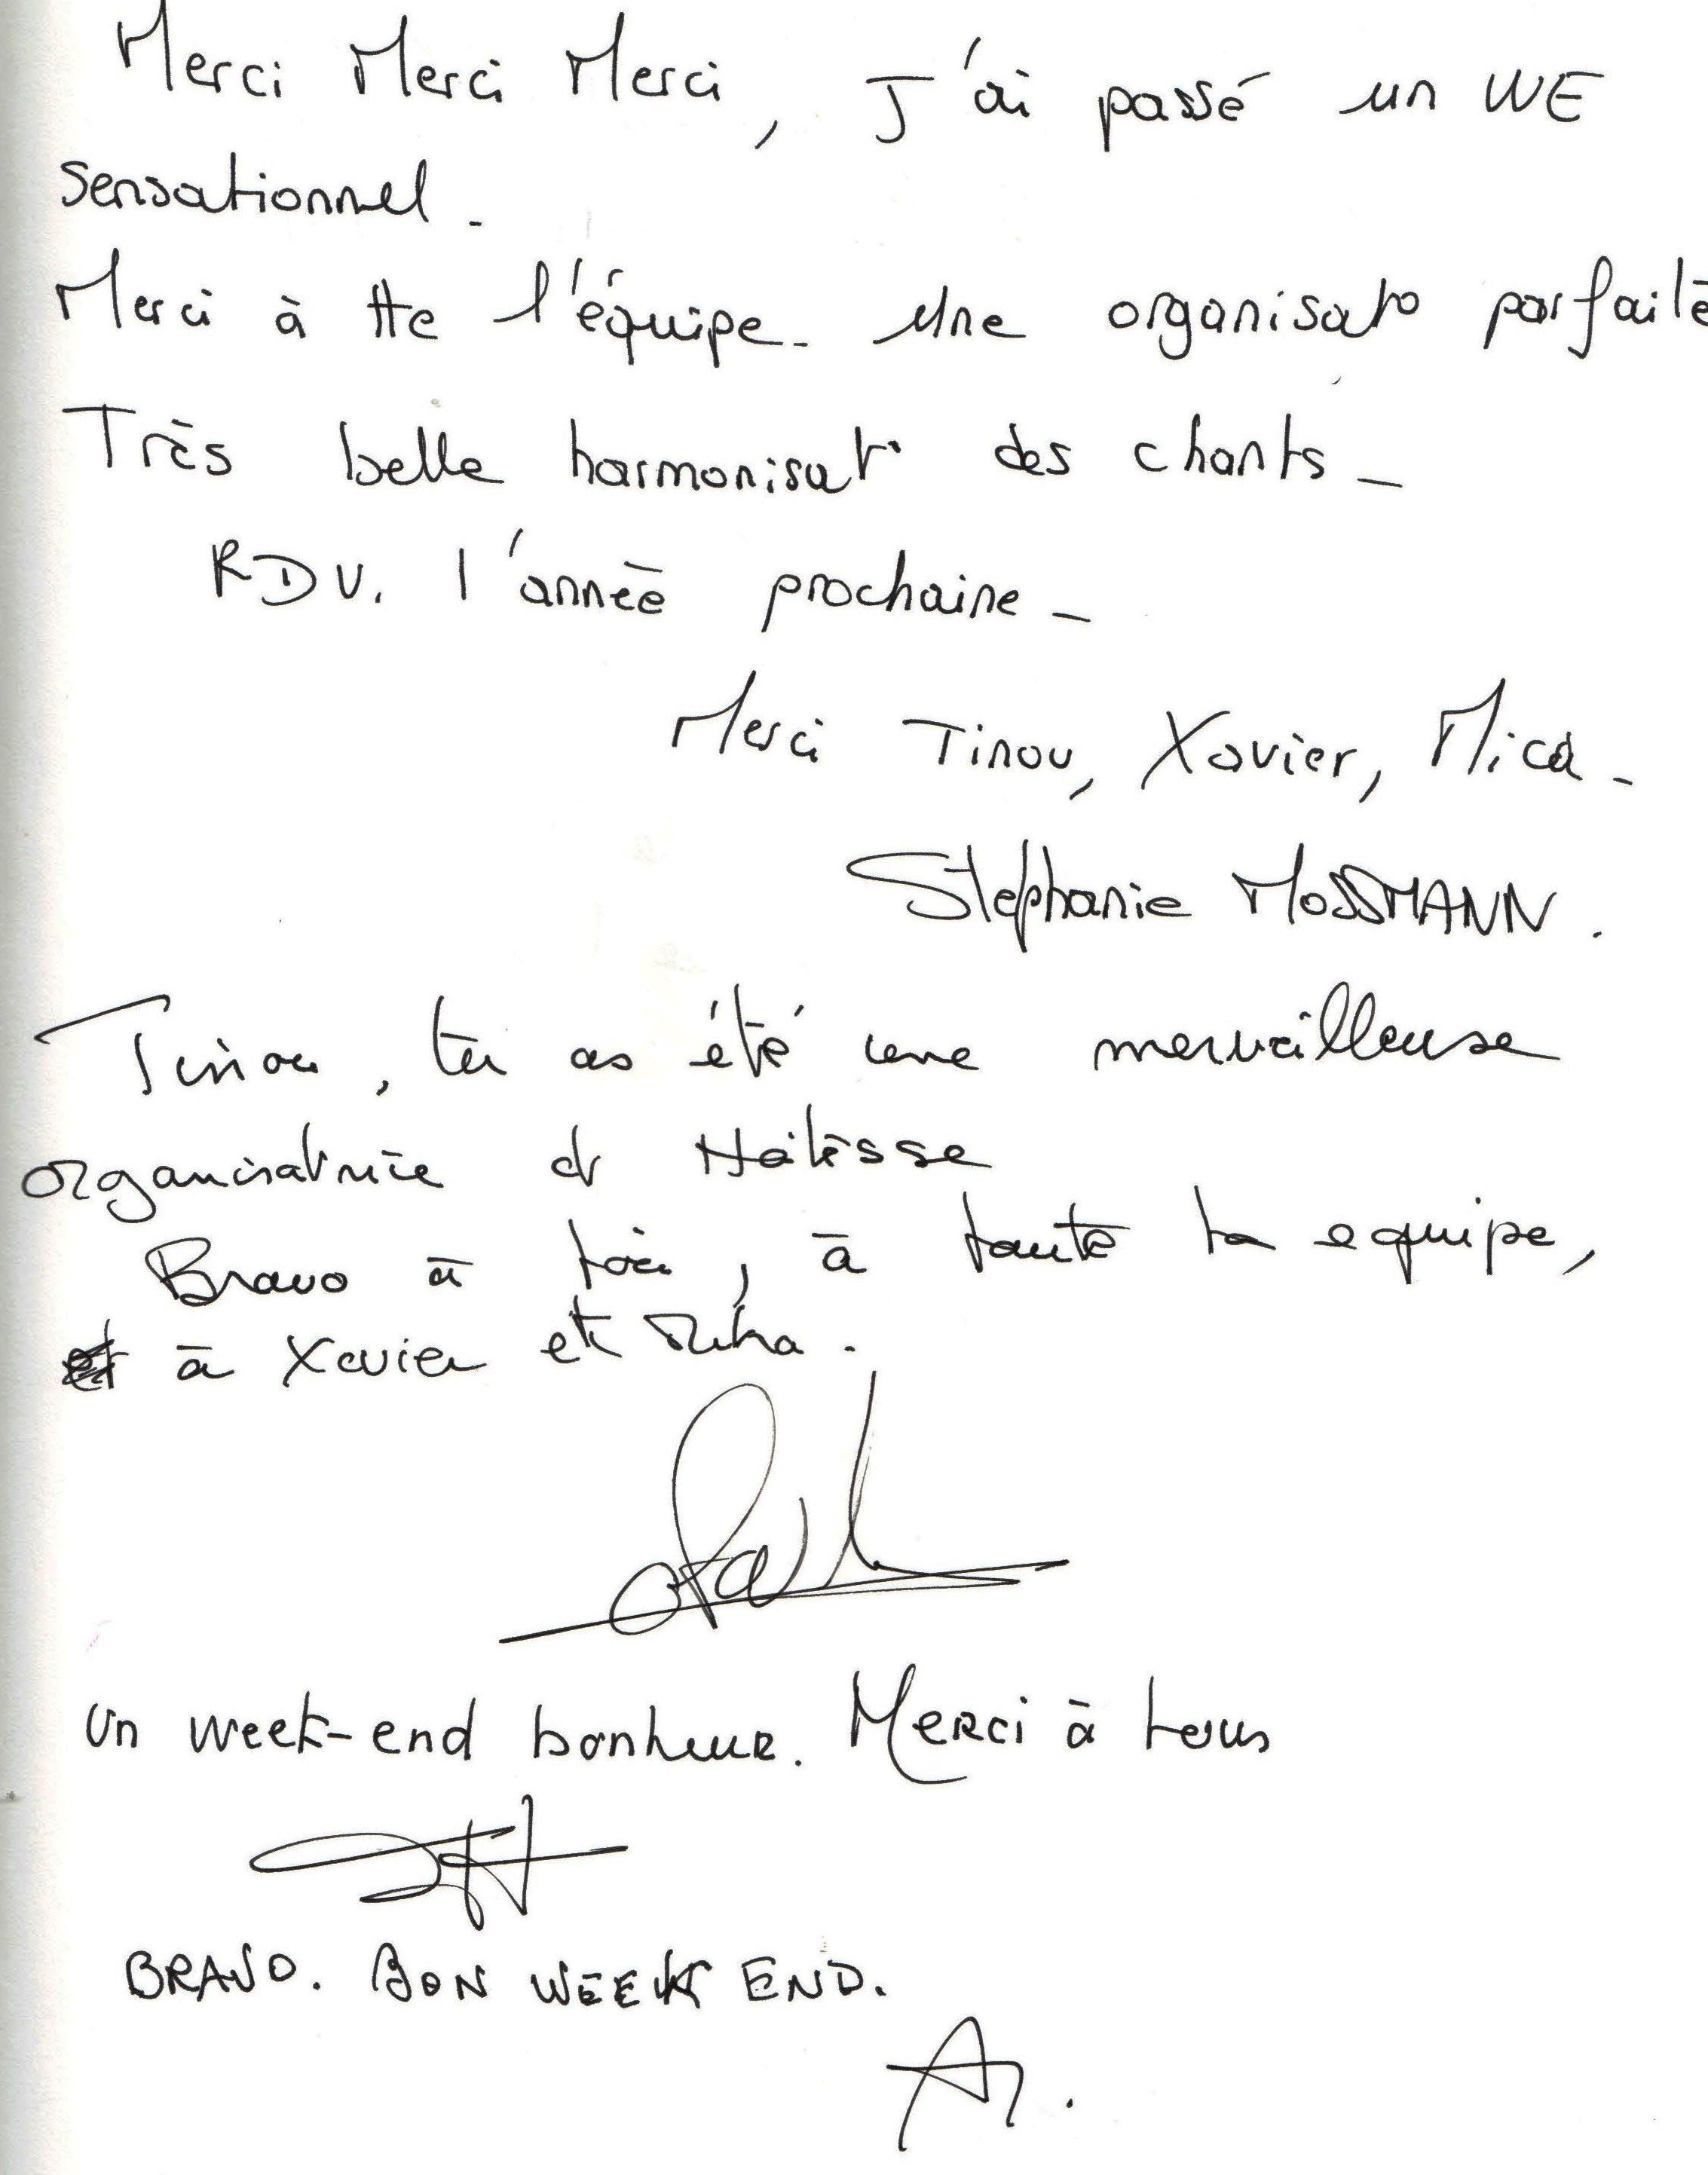 Merci Merci Merci, J'ai passé un WE
sensationnel.
Merci à tte l'équipe. Une organisato parfaite
Très belle harmonisat° des chants_
RDV. l'année prochaine_
Merci Tinou, Xavier, Mica.
Stephanie MOSSMANN.
Tinou, tu as été une merveilleuse
organisatrice et Hôtesse
Bravo à toi, à toute ta equipe,
à Xavier et
Un week-end bonheur. Merci à tous
BRAVO. BON WEEK END.